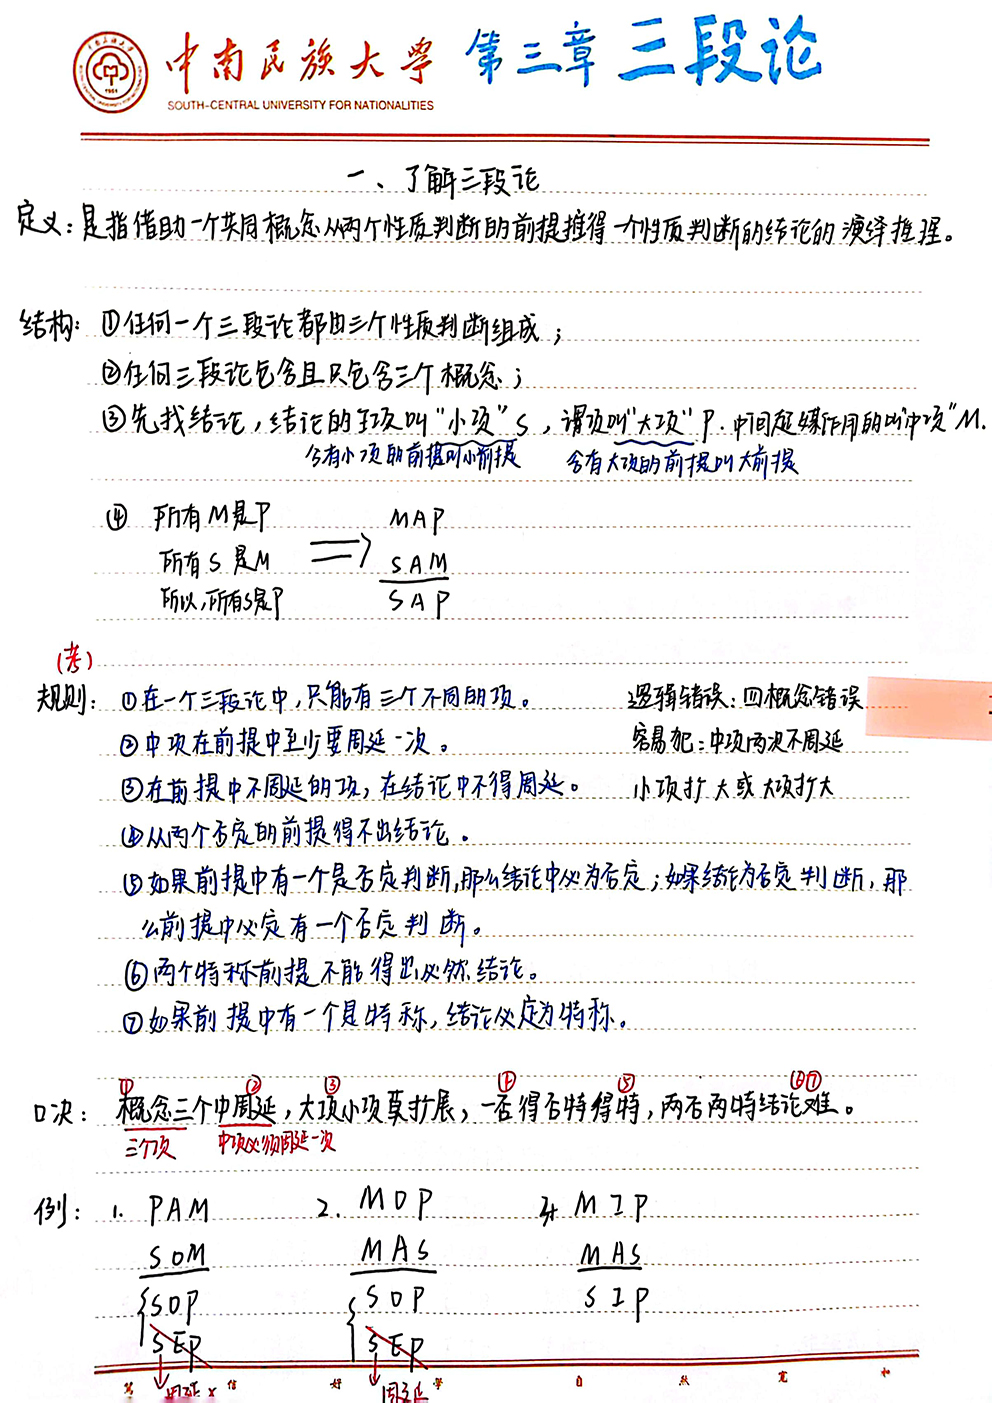 中南民族大学 第三章 三段论
SOUTH-CENTRAL UNIVERSITY FOR NATIONALITIES
一、了解三段论
定义：是指借助一个共同概念从两个性质判断的前提推得一个性质判断的结论的演绎推理。
结构：①任何一个三段论都由三个性质判断组成；
②任何三段论包含且只包含三个概念；
③先找结论，结论的主项叫"小项"S，谓项叫"大项"P. 中间起媒介作用的叫"中项"M.
含有小项的前提叫小前提 含有大项的前提叫大前提
④ 所有M是P MAP
所有S是M SAM
所以，所有S是P SAP
(考)
规则：①在一个三段论中，只能有三个不同的项。 逻辑错误：四概念错误
②中项在前提中至少要周延一次。 容易犯：中项两次不周延
③在前提中不周延的项，在结论中不得周延。 小项扩大或大项扩大
④从两个否定的前提得不出结论。
⑤如果前提中有一个是否定判断，那么结论中必为否定；如果结论为否定判断，那
么前提中必定有一个否定判断。
⑥两个特称前提不能得出必然结论。
⑦如果前提中有一个是特称，结论必定为特称。
① ② ③ ④ ⑤ ⑥⑦
口决：概念三个中周延，大项小项莫扩展，一否得否特得特，两否两特结论难。
三个项 中项必须周延一次
例：1. PAM 2. MOP 3. MIP
SOM MAS MAS
SOP SOP SIP
SEP SEP
笃 信 好 学 自 然 宽 和
周延 × 周延